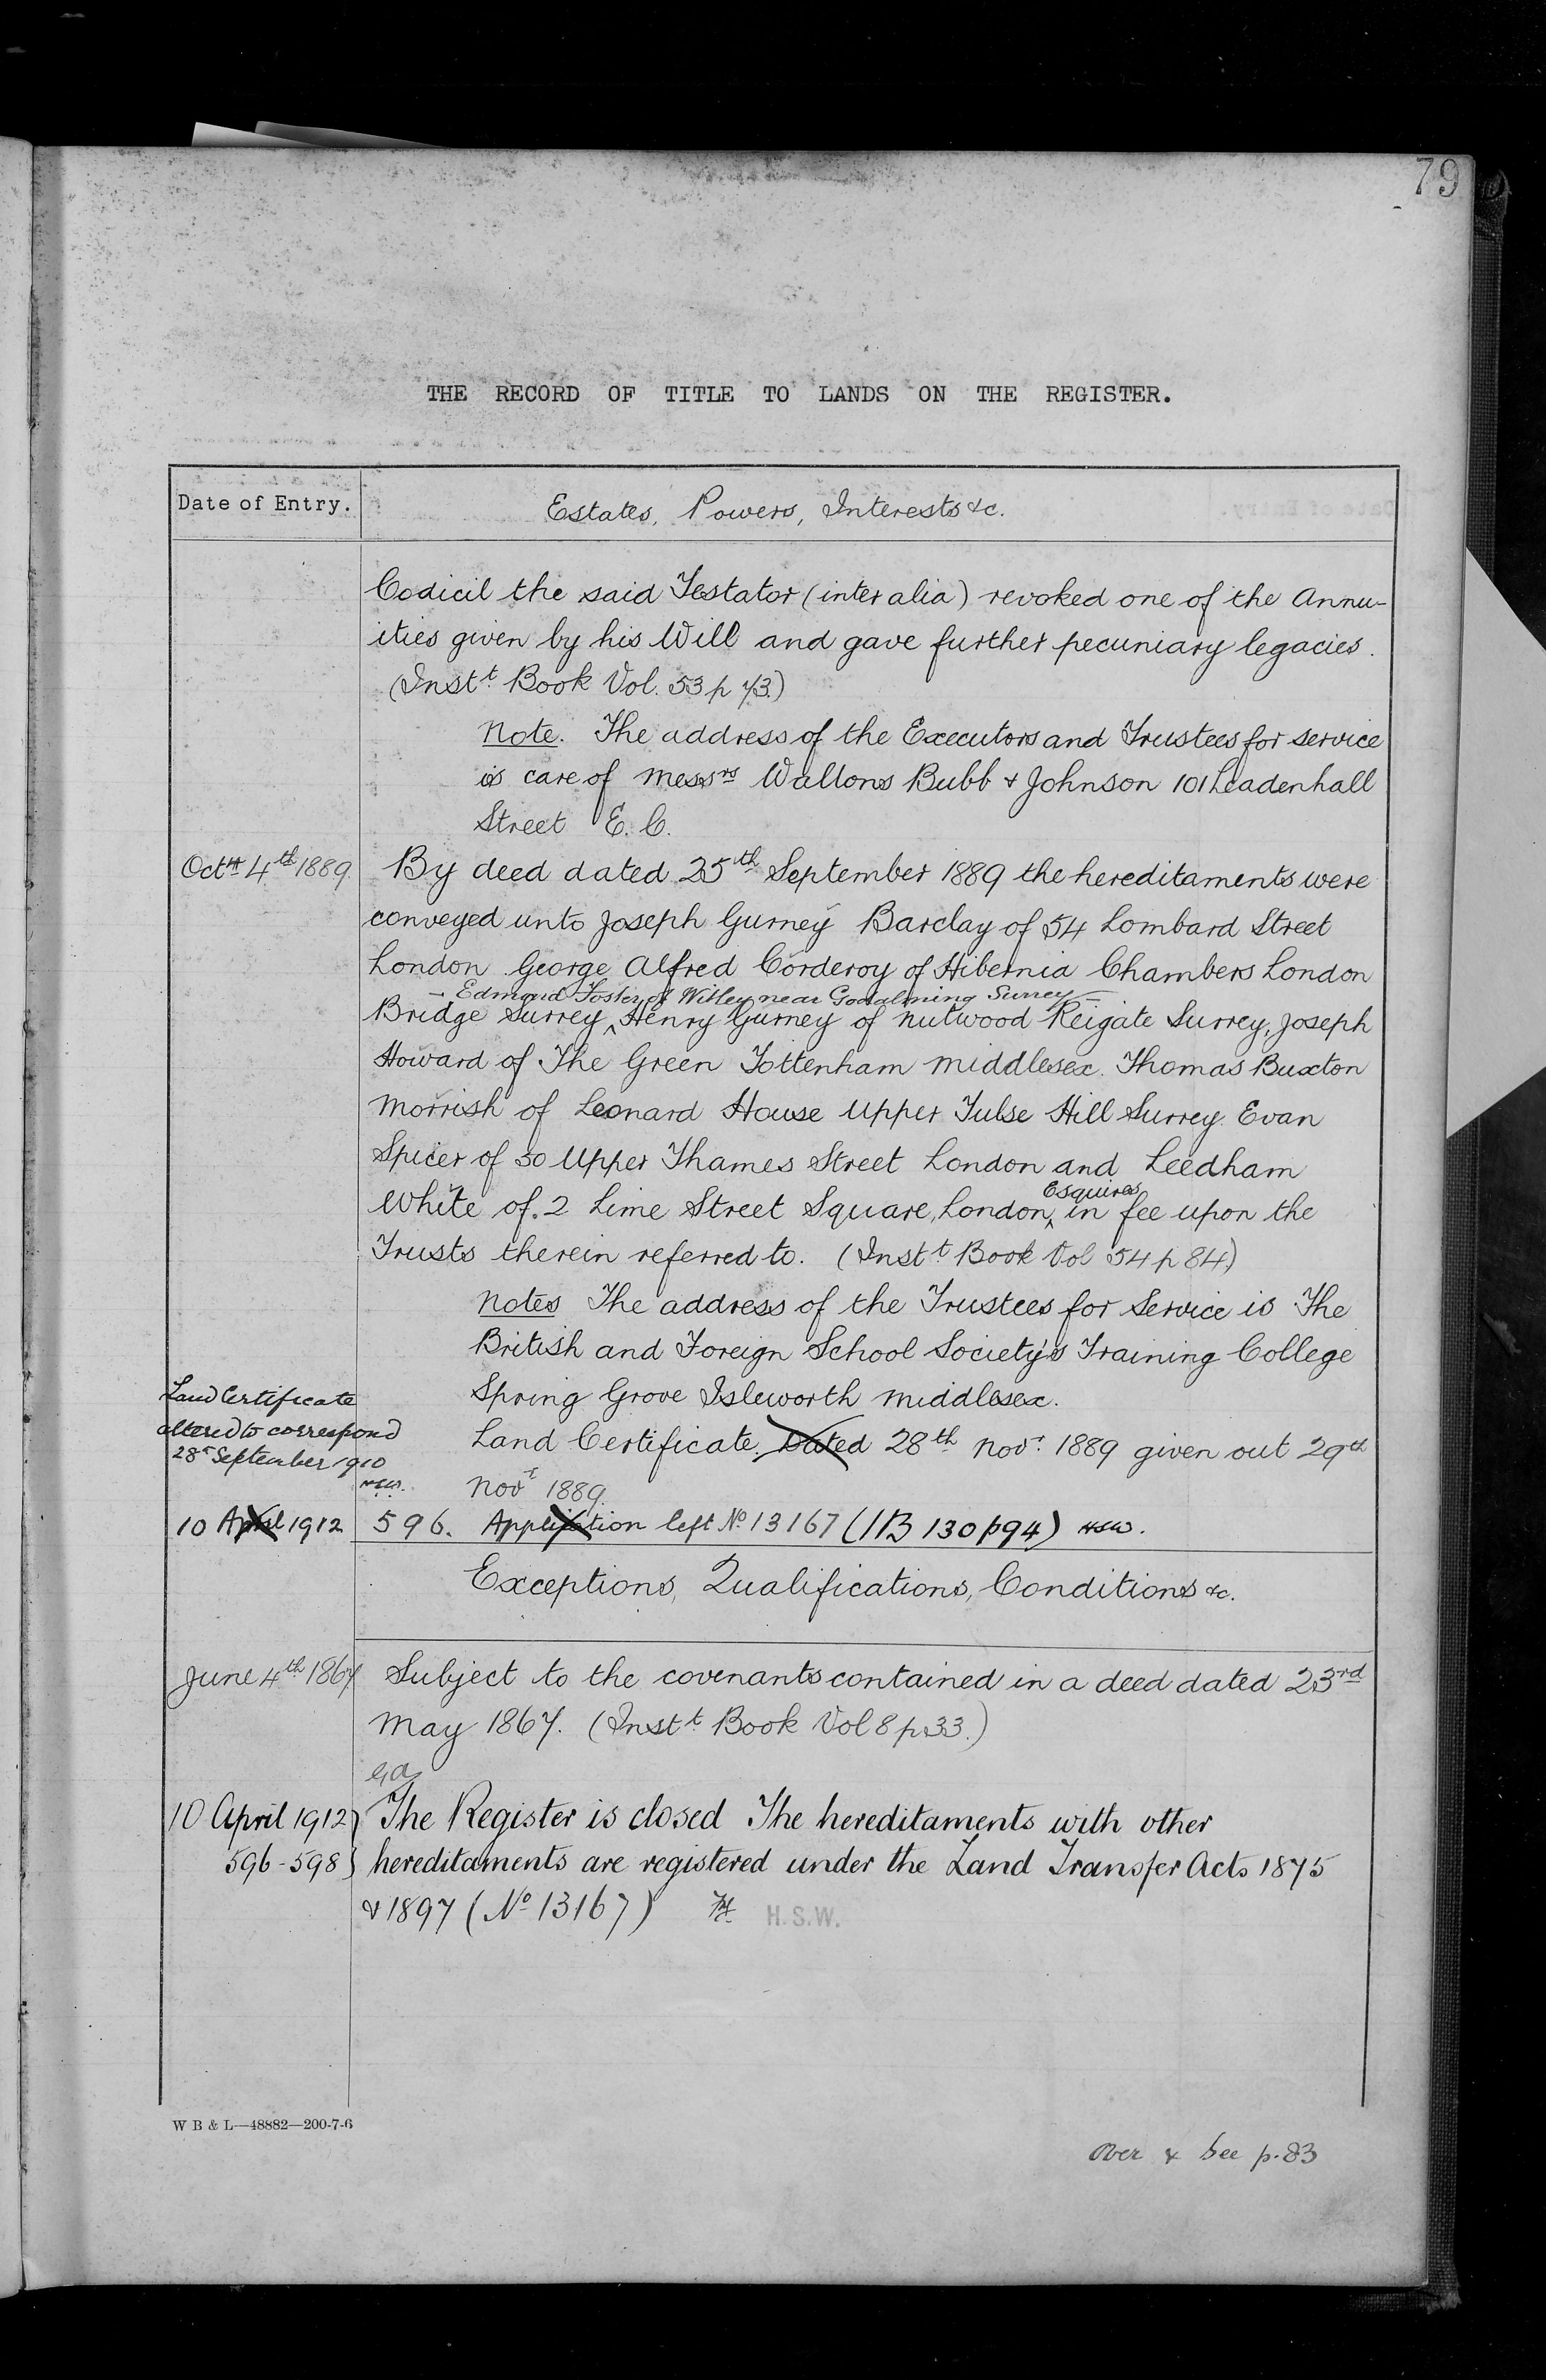 79
THE RECORD OF TITLE TO LANDS ON THE REGISTER.
Date of Entry.
Estates, Powers, Interests &c.
Codicil the said Testator (inter alia) revoked one of the Annu-
ities given by his Will and gave further pecuniary legacies.
(Instt Book Vol. 53 p 73.)
Note. The address of the Executors and Trustees for service
is care of Messrs Waltons Bubb & Johnson 101 Leadenhall
Street E.C.
Octr 4th 1889
By deed dated 25th September 1889 the hereditaments were
conveyed unto Joseph Gurney Barclay of 54 Lombard Street
London George Alfred Corderoy of Hibernia Chambers London
Edmund Foster of Witley near Godalming Surrey
Bridge Surrey, Henry Gurney of Nutwood Reigate Surrey, Joseph
Howard of The Green Tottenham Middlesex. Thomas Buxton
Morrish of Leonard House Upper Tulse Hill Surrey Evan
Spicer of 50 Upper Thames Street London and Leedham
Esquires
White of 2 Lime Street Square, London, in fee upon the
Trusts therein referred to. (Instt Book Vol 54 p 84)
Notes The address of the Trustees for Service is The
British and Foreign School Society's Training College
Spring Grove Isleworth Middlesex.
Land Certificate
altered to correspond
28th September 1910
H.S.W.
Land Certificate. Dated 28th Novr. 1889 given out 29th
Novr 1889.
10 April 1912
596. Application left No 13167 (IB 130 p94) HSW.
Exceptions, Qualifications, Conditions &c.
June 4th 1867
Subject to the covenants contained in a deed dated 23rd
May 1867. (Instt Book Vol 8 p 33.)
10 April 1912
596-598
The Register is closed The hereditaments with other
hereditaments are registered under the Land Transfer Acts 1875
& 1897 (No 13167)
H.S.W.
W B & L—48882—200-7-6
Over & See p. 83